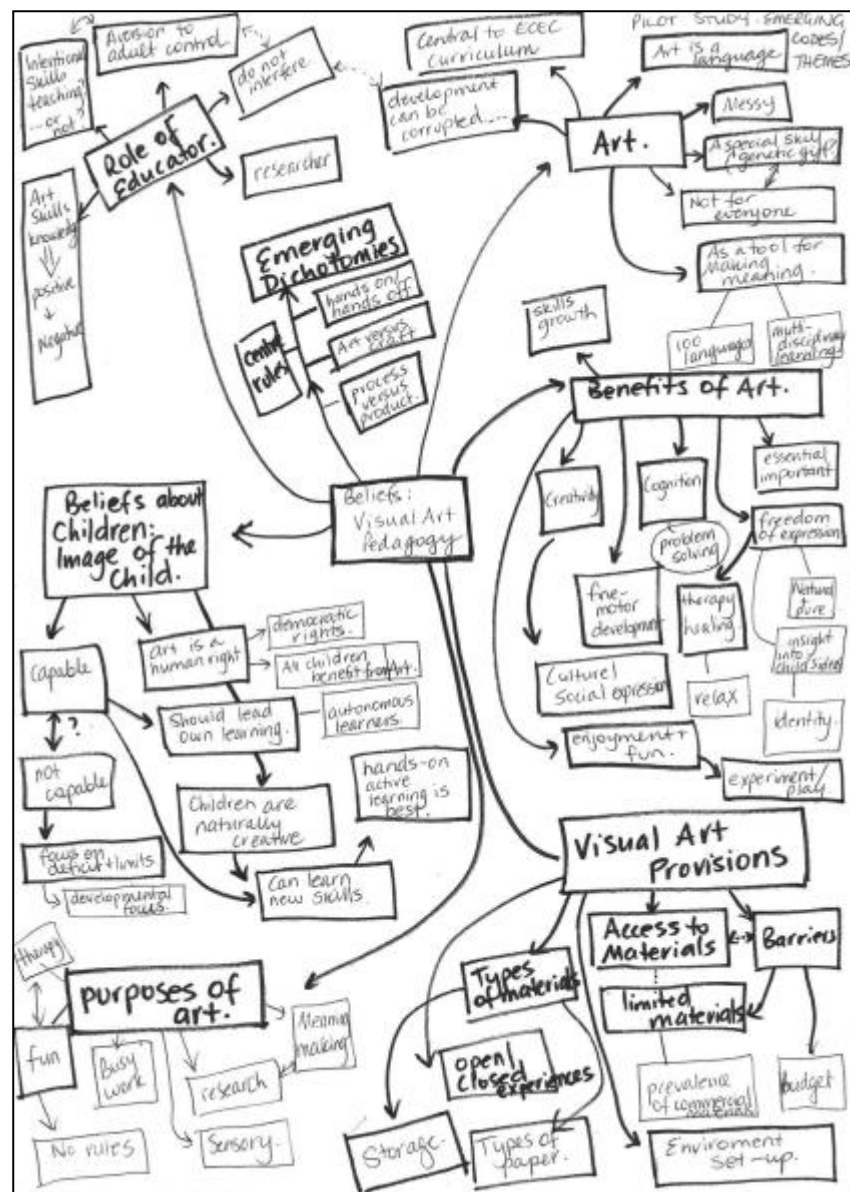 PILOT STUDY - EMERGING
CODES/
THEMES
Intentional
Skills
teaching?
...or
not?
Aversion to
adult control
do not
interfere
Role of
Educator.
researcher
Art
Skills
knowledge
positive
Negative
Central to ECEC
curriculum
development
can be
corrupted....
Art is a
language
Messy
Art.
A special skill
genetic gift?
Not for
everyone
As a tool for
Making
meaning.
100
languages
multi-
disciplinary
learning
Emerging
Dichotomies
hands on/
hands off
centre
rules
Art versus
craft
process
versus
product.
skills
growth
Benefits of Art.
Creativity
Cognition
problem
solving
essential
important
freedom
of expression
fine-
motor
development
therapy
healing
relax
Natural
pure
insight
into
child's
identity.
Culture/
Social expression
enjoyment +
fun.
experiment/
play.
Beliefs:
Visual Art
Pedagogy
Beliefs about
Children:
Image of the
Child.
capable
?
not
capable
focus on
deficit + limits
developmental
focus.
art is a
human right
democratic
rights.
All children
benefit from Art.
Should lead
own learning.
autonomous
learners.
Children are
naturally
creative
hands-on
active
learning is
best.
Can learn
new skills.
Visual Art
Provisions
Access to
Materials
Barriers
limited
materials
prevalence
of commercial
materials
budget
Types
of materials
open/
closed
experiences
Storage.
Types of
paper.
Enviroment
set-up.
therapy
purposes of
art.
fun
Busy
work
research
Meaning
making
No rules
Sensory.